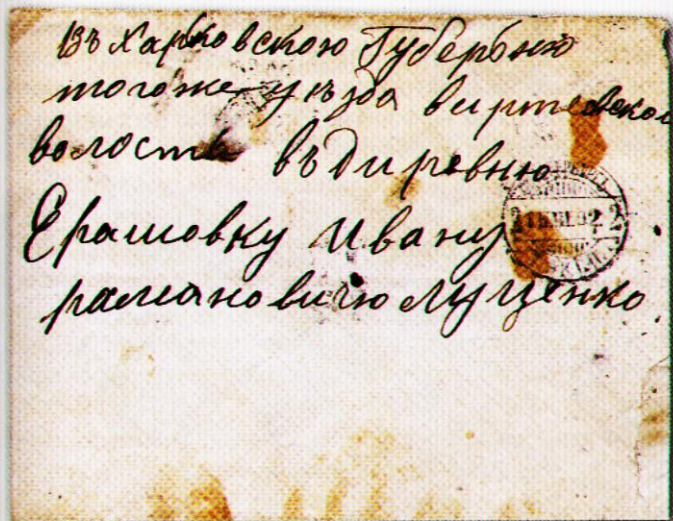 Въ Харковскою Губерьнію
тогоже уѣзда виртеевской
волость въ диревню
Ерашовку Ивану
рамановичю Луценко